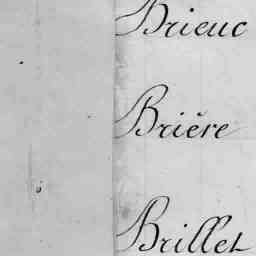 Brieuc
Brière
Brillet